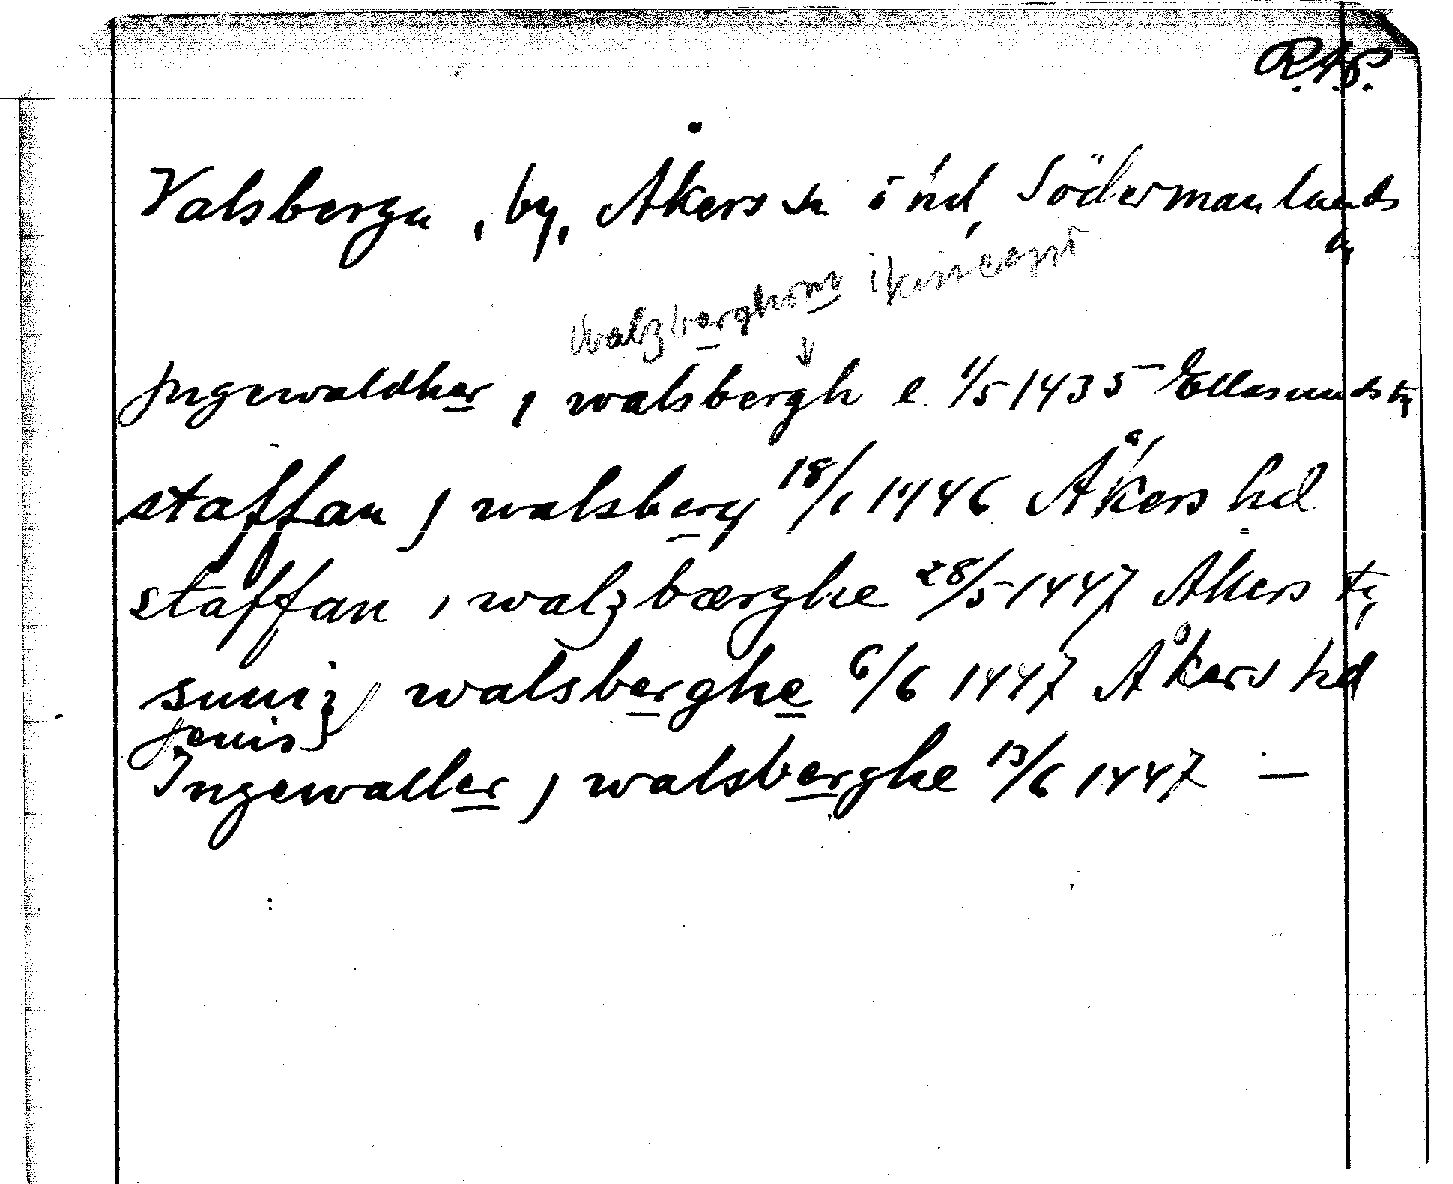 R.A.P.
Valsberga, by, Åkers sn o hd, Södermanlands
ln
walzberghom
Jngewaldher , walsbergh e. 1/5 1435 Ellesunds tg
staffan j walsberg 18/1 1446 Åkers hd
staffan , walzbærghe 28/5 1447 Akers tg
suniz j walsberghe 6/6 1447 Åkers hd
jenis
Jngewaller j walsberghe 13/6 1447 —